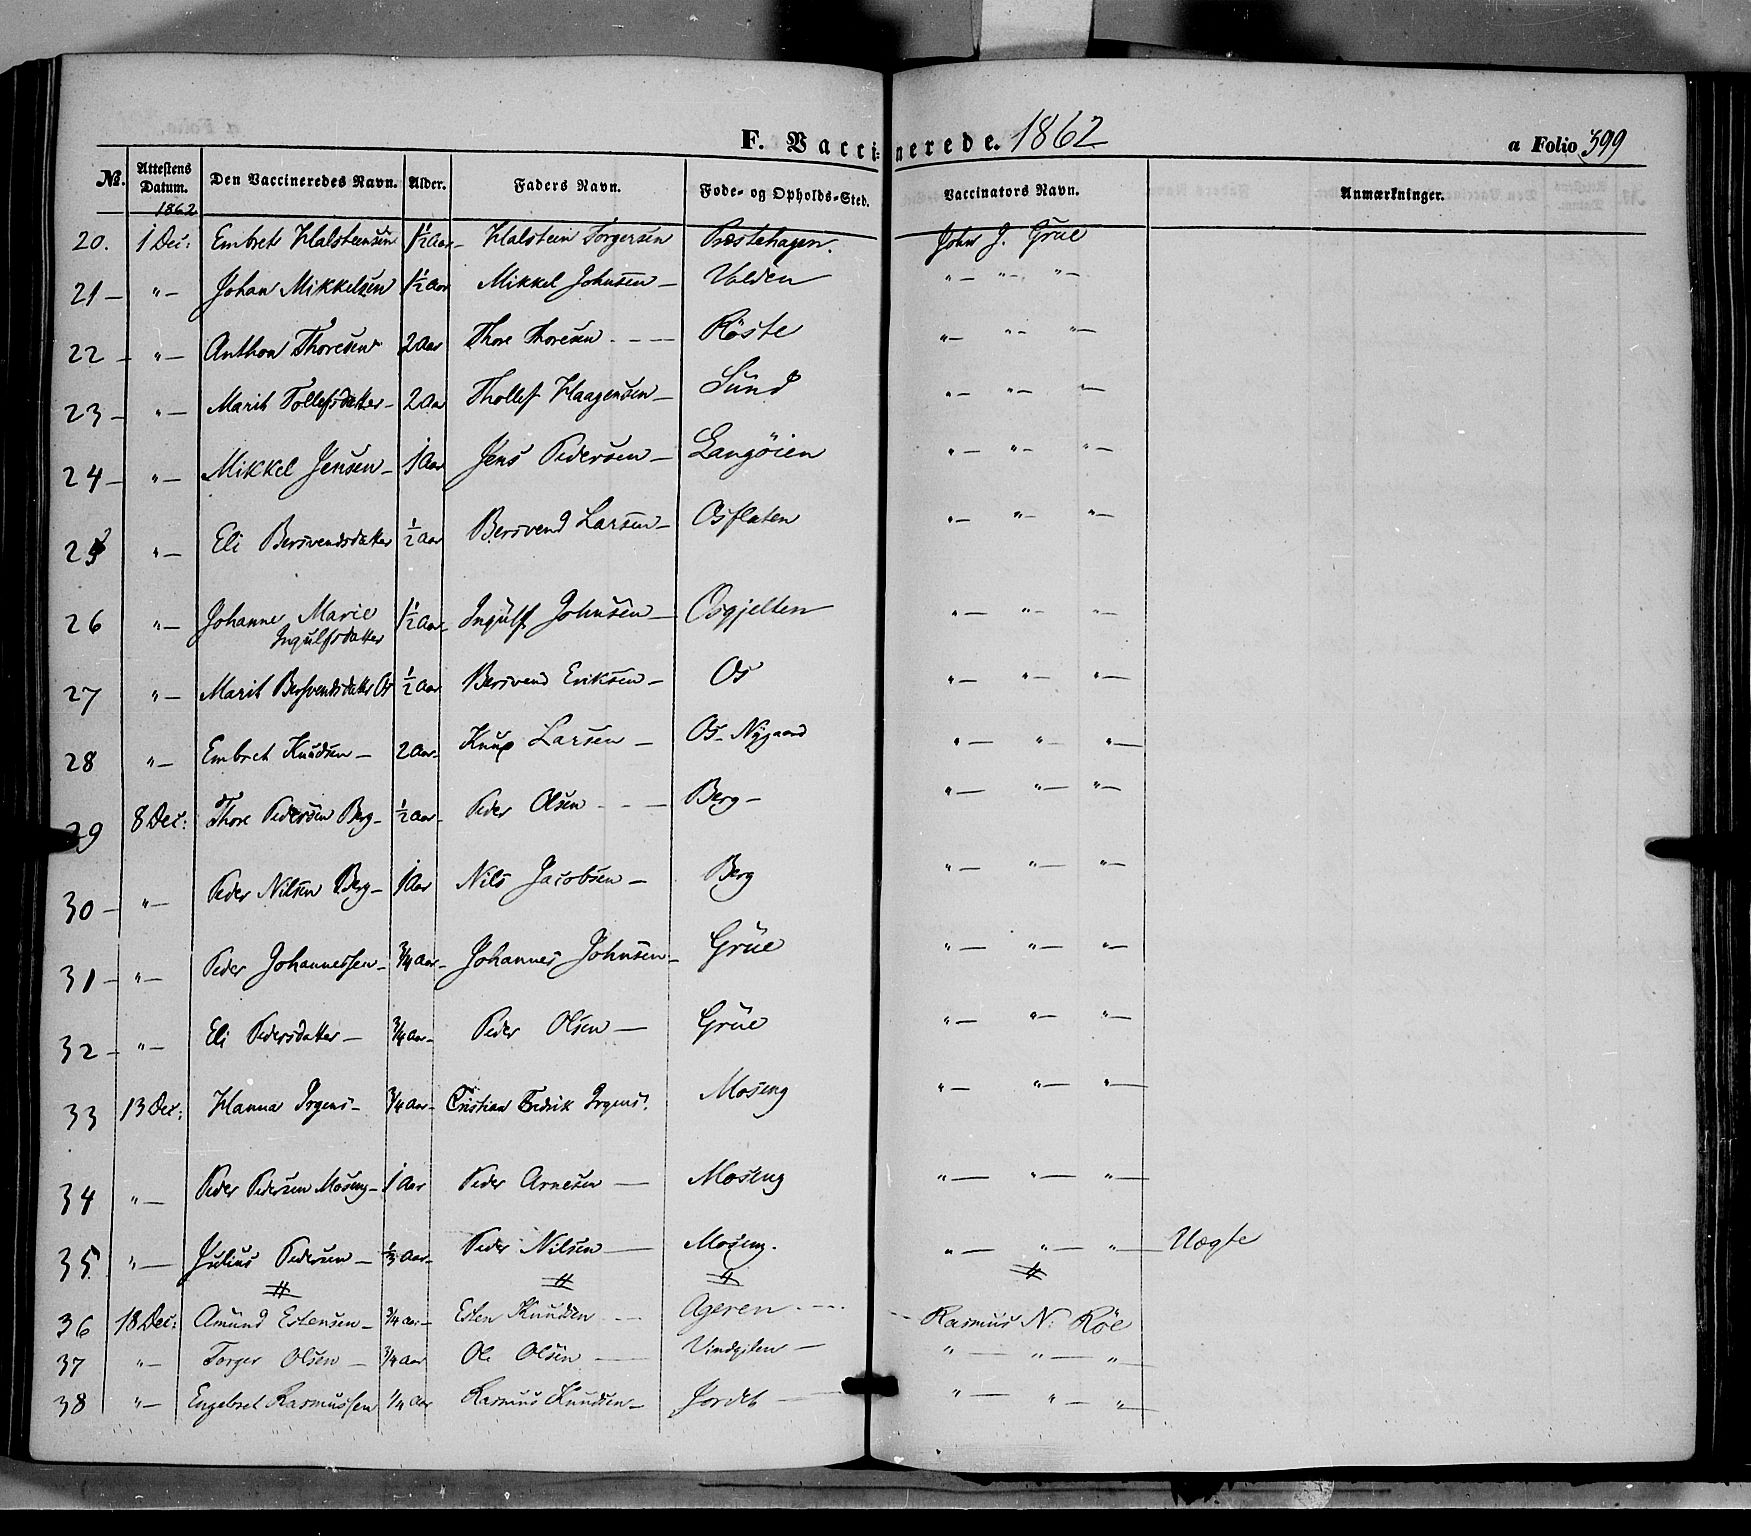 F. Vaccinerede. 1862 a Folio 399
No. Attestens Datum. Den Vaccineredes Navn. Alder. Faders Navn. Føde- og Opholds-Sted. Vaccinators Navn. Anmærkninger.
1862
20. 1 Dec: Embret Halsteensen 1½ Aar – Halstein Torgersen Præstehagen. John J. Grue
21 – " – Johan Mikkelsen 1½ Aar Mikkel Johnsen – Volden " – " – " –
22 – " – Anthon Thoresen 2 Aar Thore Thoresen – – – Röste " – " – " –
23 – " – Marit Tollefsdatter – 2 Aar Thollef Haagensen – Sund " – " – " –
24 – " – Mikkel Jensen – 1 Aar Jens Pedersen – Langöien " – " – " –
25 " – Eli Bersvendsdatter ½ Aar Bersvend Larsen – Osflaten " – " – " –
26 " – Johanne Marie Ingulfsdatter 1½ Aar – Ingulf Johnsen – Osgjelten " – " – " –
27 " – Marit Bersvendsdatter Os ½ Aar Bersvend Eriksen – Os " – " – " –
28 " – Embret Knudsen – 2 Aar – Larsen – Os-Nygaard " – " – " –
29 8 Dec: Thore Pedersen Berg – ½ Aar – Peder Olsen – – – Berg – " – " – " –
30 – " – Peder Nilsen Berg – 1 Aar Nils Jacobsen – Berg " – " – " –
31 – " – Peder Johannessen – ¾ Aar – Johannes Johnsen – Grüe " – " – " –
32 – " – Eli Pedersdatter – ¾ Aar – Peder Olsen – Grüe " – " – " –
33 13 Dec: Hanna Irgens – ¾ Aar – Cristian Fedrik Irgens. Moseng " – " – " –
34 " – Peder Pedersen Moseng – 1 Aar Peder Arnesen – Moseng " – " – " –
35 " – Julius Pedersen – ⅓ Aar – Peder Nilsen – Moseng. " – " – " – Uægte
36 18 Dec: Amund Estensen – ¾ Aar – Esten Knudsen – – Ageren – – – Rasmus N: Röe
37 " – Torger Olsen – ¾ Aar Ole Olsen – – " – " – " –
38 " – Engebret Rasmussen ¼ Aar Rasmus Knudsen – Jordet – " – " – " –